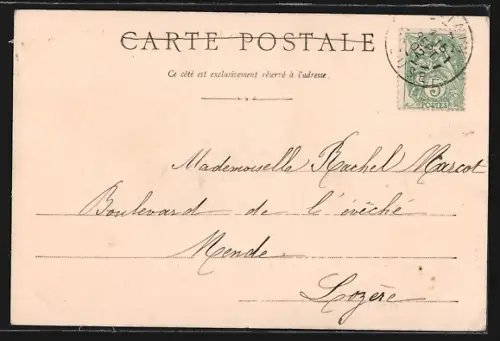 CARTE POSTALE
Ce côté est exclusivement réservé à l'adresse
5
POSTES
Mademoiselle Rachel Marcot
Boulevard de l'évêché
Mende
Lozère